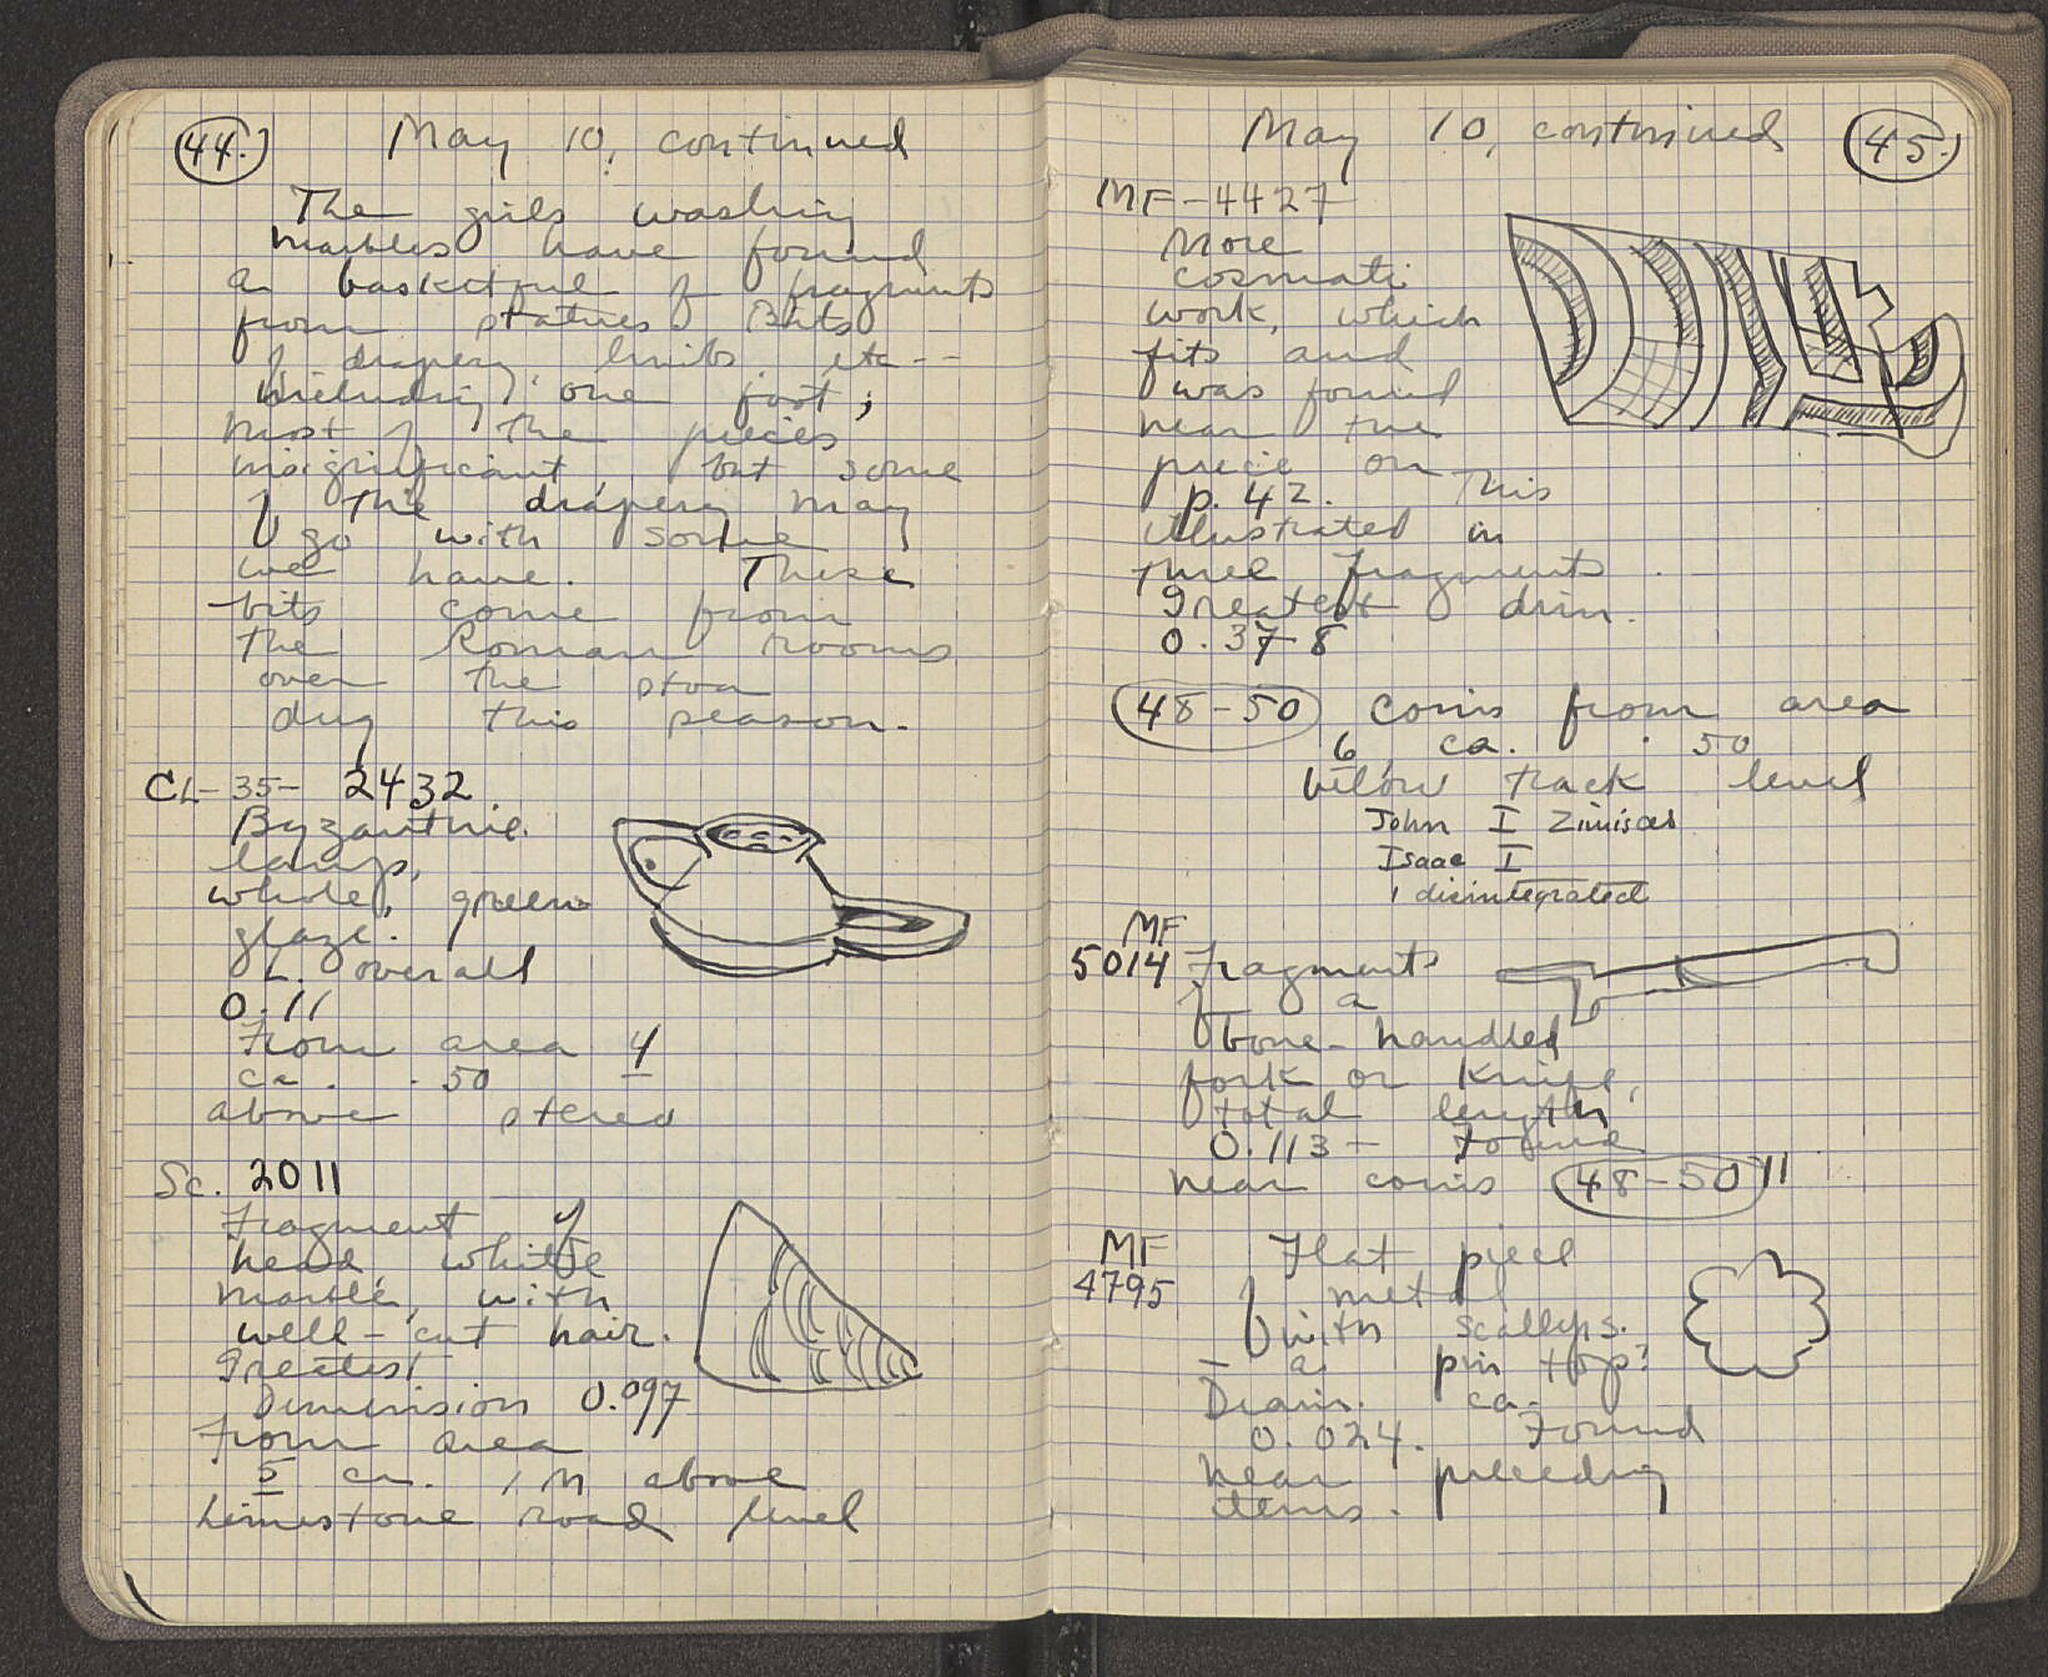 44.
May 10, continued
The girls washing
marbles have found
a basketful of fragments
from statues. Bits
of drapery, limbs, etc --
including one foot;
most of the pieces
insignificant, but some
of the drapery may
go with some
we have. These
bits come from
the Roman rooms
over the stoa
dug this season.
CL-35- 2432.
Byzantine
lamp,
whole, green
glaze.
L. overall
0.11
From area 4
ca. .50
above stereo
Sc. 2011
Fragment of
head, white
marble, with
well-cut hair.
Greatest
Dimension 0.097
From area
5 ca. 1 m above
Limestone road level
May 10, continued
45.
MF-4427
More
cosmati
work, which
fits and
was found
near the
piece on
p. 42. This
illustrated in
three fragments.
Greatest dim.
0.378
48-50 Coins from area
6, ca. .50
below track level
John I Zimisces
Isaac I
1 disintegrated
MF
5014 Fragments
of a
bone-handled
fork or knife,
total length
0.113 - Found
near coins 48-50
MF
4795
Flat piece
of metal
with scallops.
- a pin top?
Diam. ca.
0.024. Found
near preceding
items.